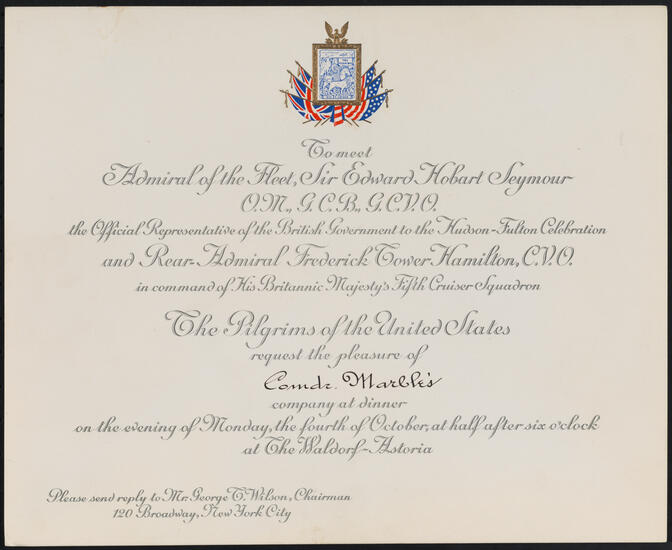 To meet
Admiral of the Fleet, Sir Edward Hobart Seymour
O.M., G.C.B., G.C.V.O.
the Official Representative of the British Government to the Hudson-Fulton Celebration
and Rear-Admiral Frederick Tower Hamilton, C.V.O.
in command of His Britannic Majesty's Fifth Cruiser Squadron
The Pilgrims of the United States
request the pleasure of
Comdr. Marble's
company at dinner
on the evening of Monday, the fourth of October, at half after six o'clock
at The Waldorf-Astoria
Please send reply to Mr. George T. Wilson, Chairman
120 Broadway, New York City